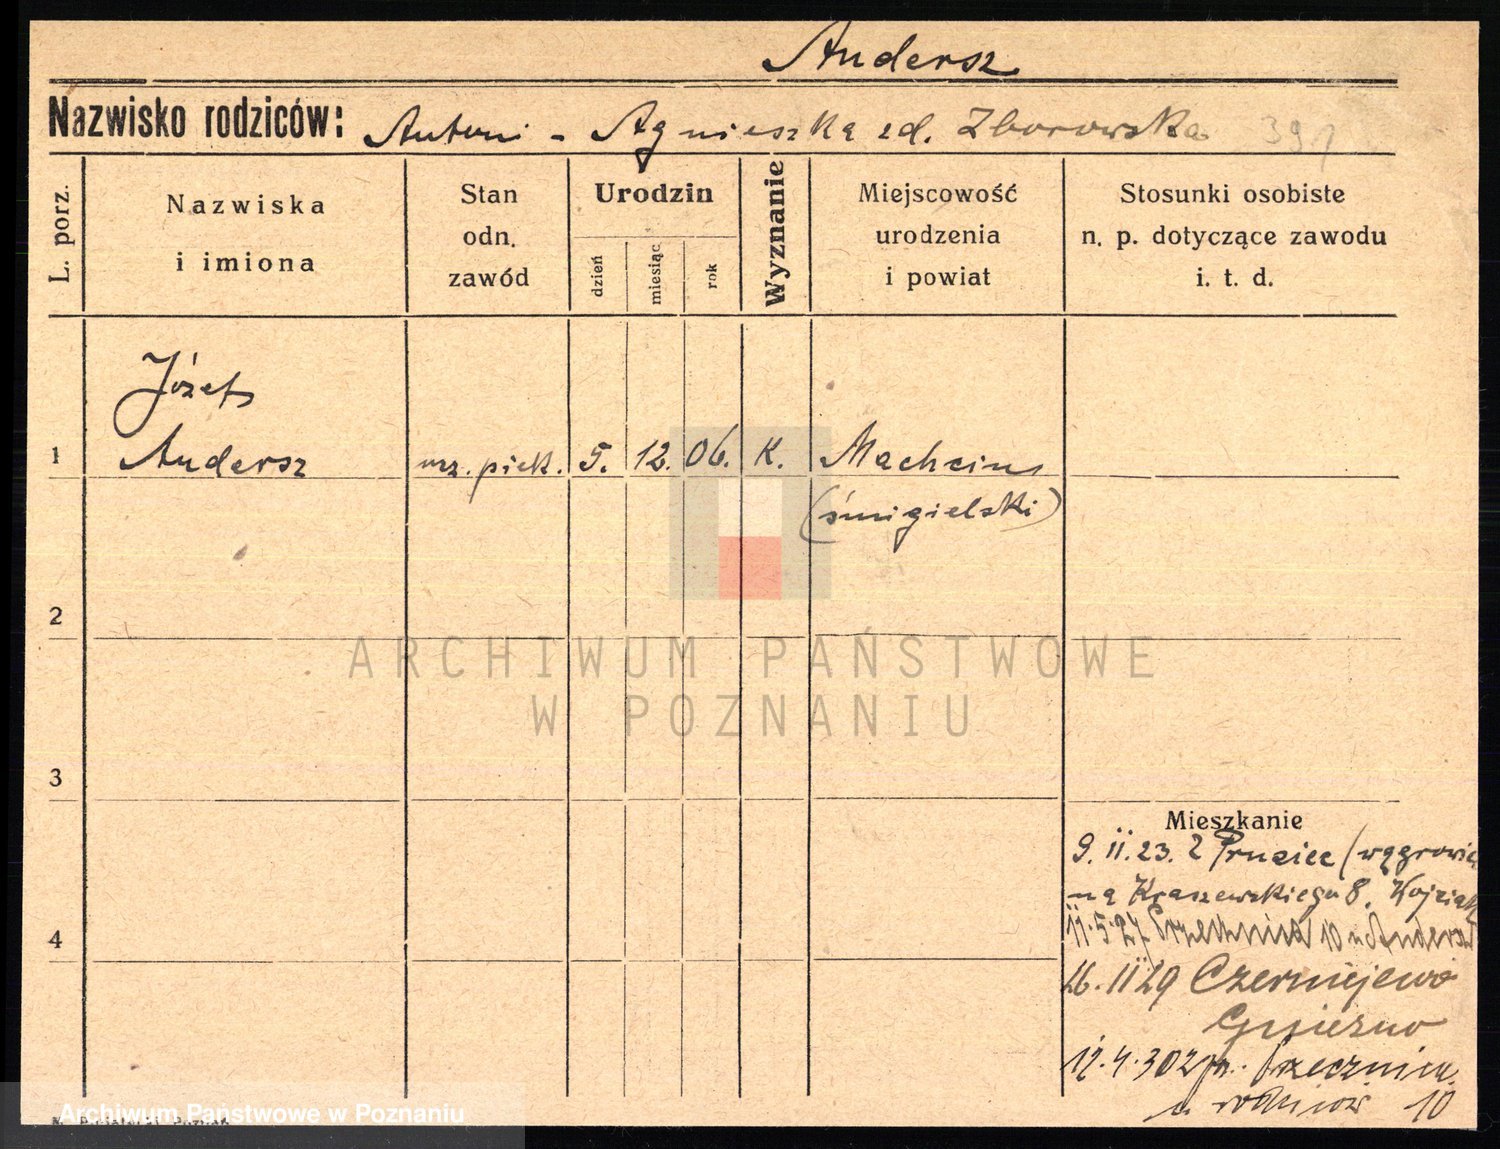 Andersz
Nazwisko rodziców: Antoni - Agnieszka zd. Zborowska 391
L. porz.
Nazwiska
i imiona
Stan
odn.
zawód
Urodzin
dzień
miesiąc
rok
Wyznanie
Miejscowość
urodzenia
i powiat
Stosunki osobiste
n. p. dotyczące zawodu
i. t. d.
Józef
1 Andersz ucz. piek. 5. 12. 06. K. Machcin
(śmigielski)
2
ARCHIWUM PAŃSTWOWE
W POZNANIU
3
Mieszkanie
9. 11. 23. z Prusiec (wągrowie
na Kraszewskiego 8.
4
11.5.27 10 u Andersz
26.11 29 Czerniejewo
Gniezno
12.4.30 Przecznica
u rodziców 10
Archiwum Państwowe w Poznaniu